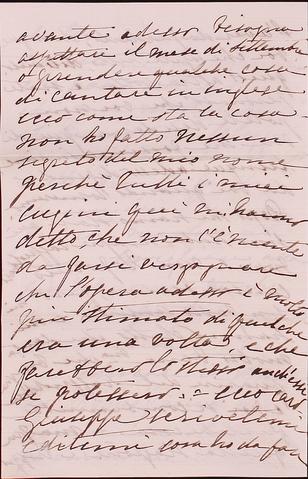 avanti adesso bisogna
aspettare il mese di Settembre
o prendere qualche cosa
di cantare in inglese
ecco come sta la cosa
non ho fatto nessun
segreto del mio nome
perchè tutti i miei
cugini quì mi hanno
detto che non c'è niente
da farsi vergognare
che l'opera adesso è molto
più stimato di quel che
era una volta, e che
farebbero lo stesso anch'essi
se potessero. = ecco caro
Giuseppe scrivetemi
e ditemi cosa ho da fare